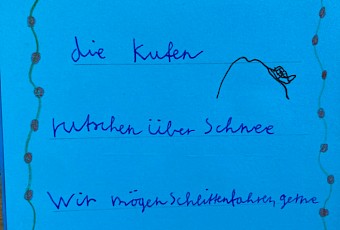 die Kufen
rutschen über Schnee
Wir mögen Schlittenfahren, gerne